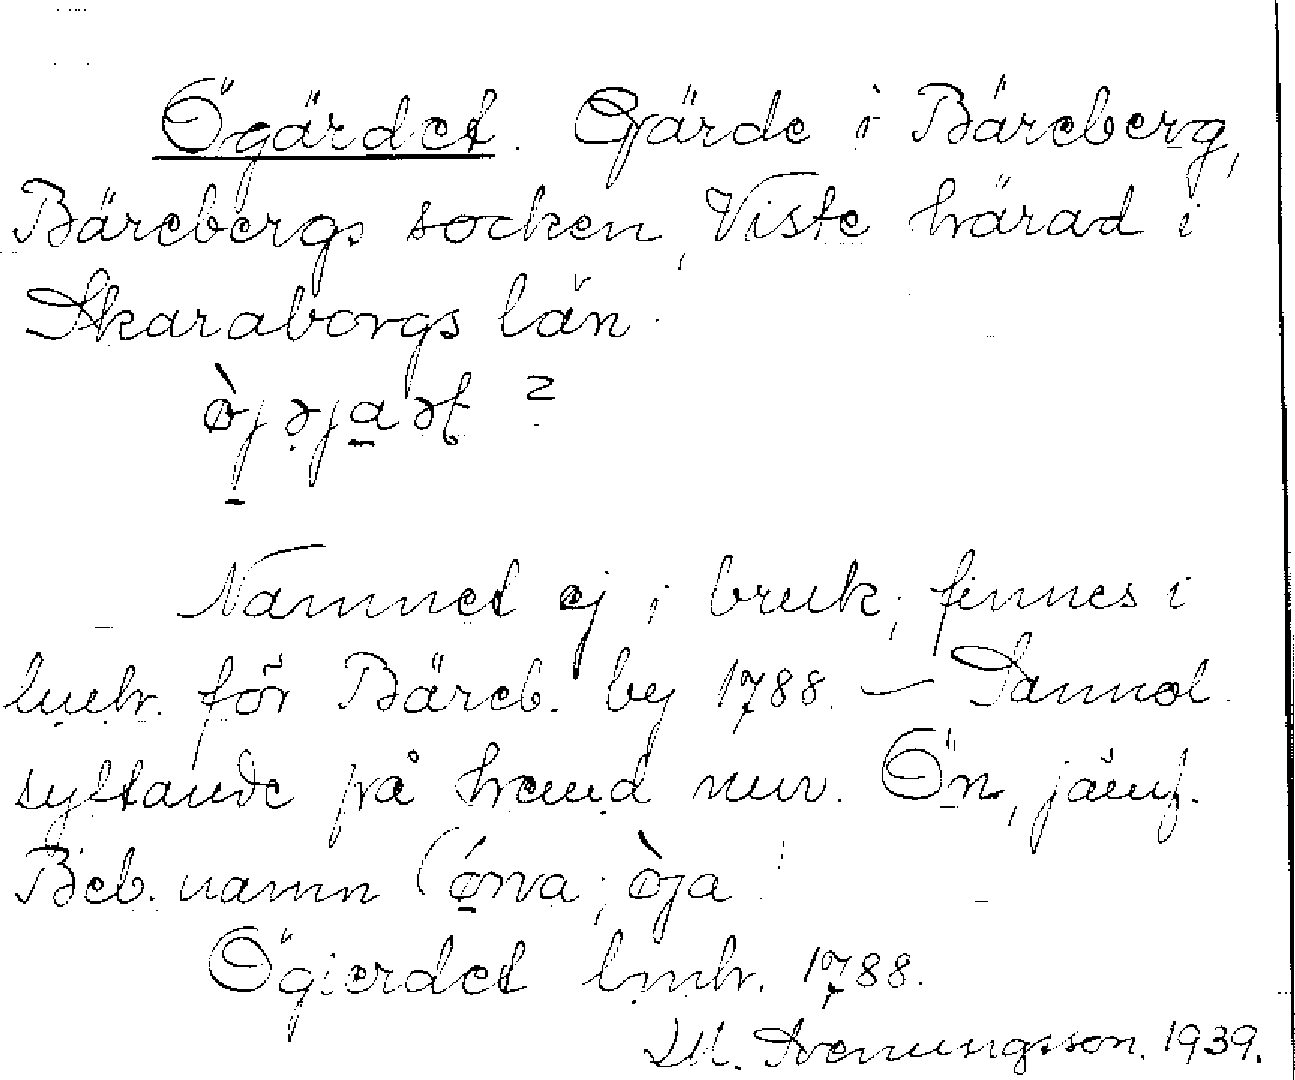 Ögärdet. Gärde i Bäreberg,
Bärebergs socken, Viste härad i
Skaraborgs län.
Namnet ej i bruk; finnes i
lmh. för Bäreb. by 1788. – Samol.
syftande på hemd nuv. Ön, jämf.
Beb. namn
Ögierdet lmh. 1788.
M. Svenungsson. 1939.